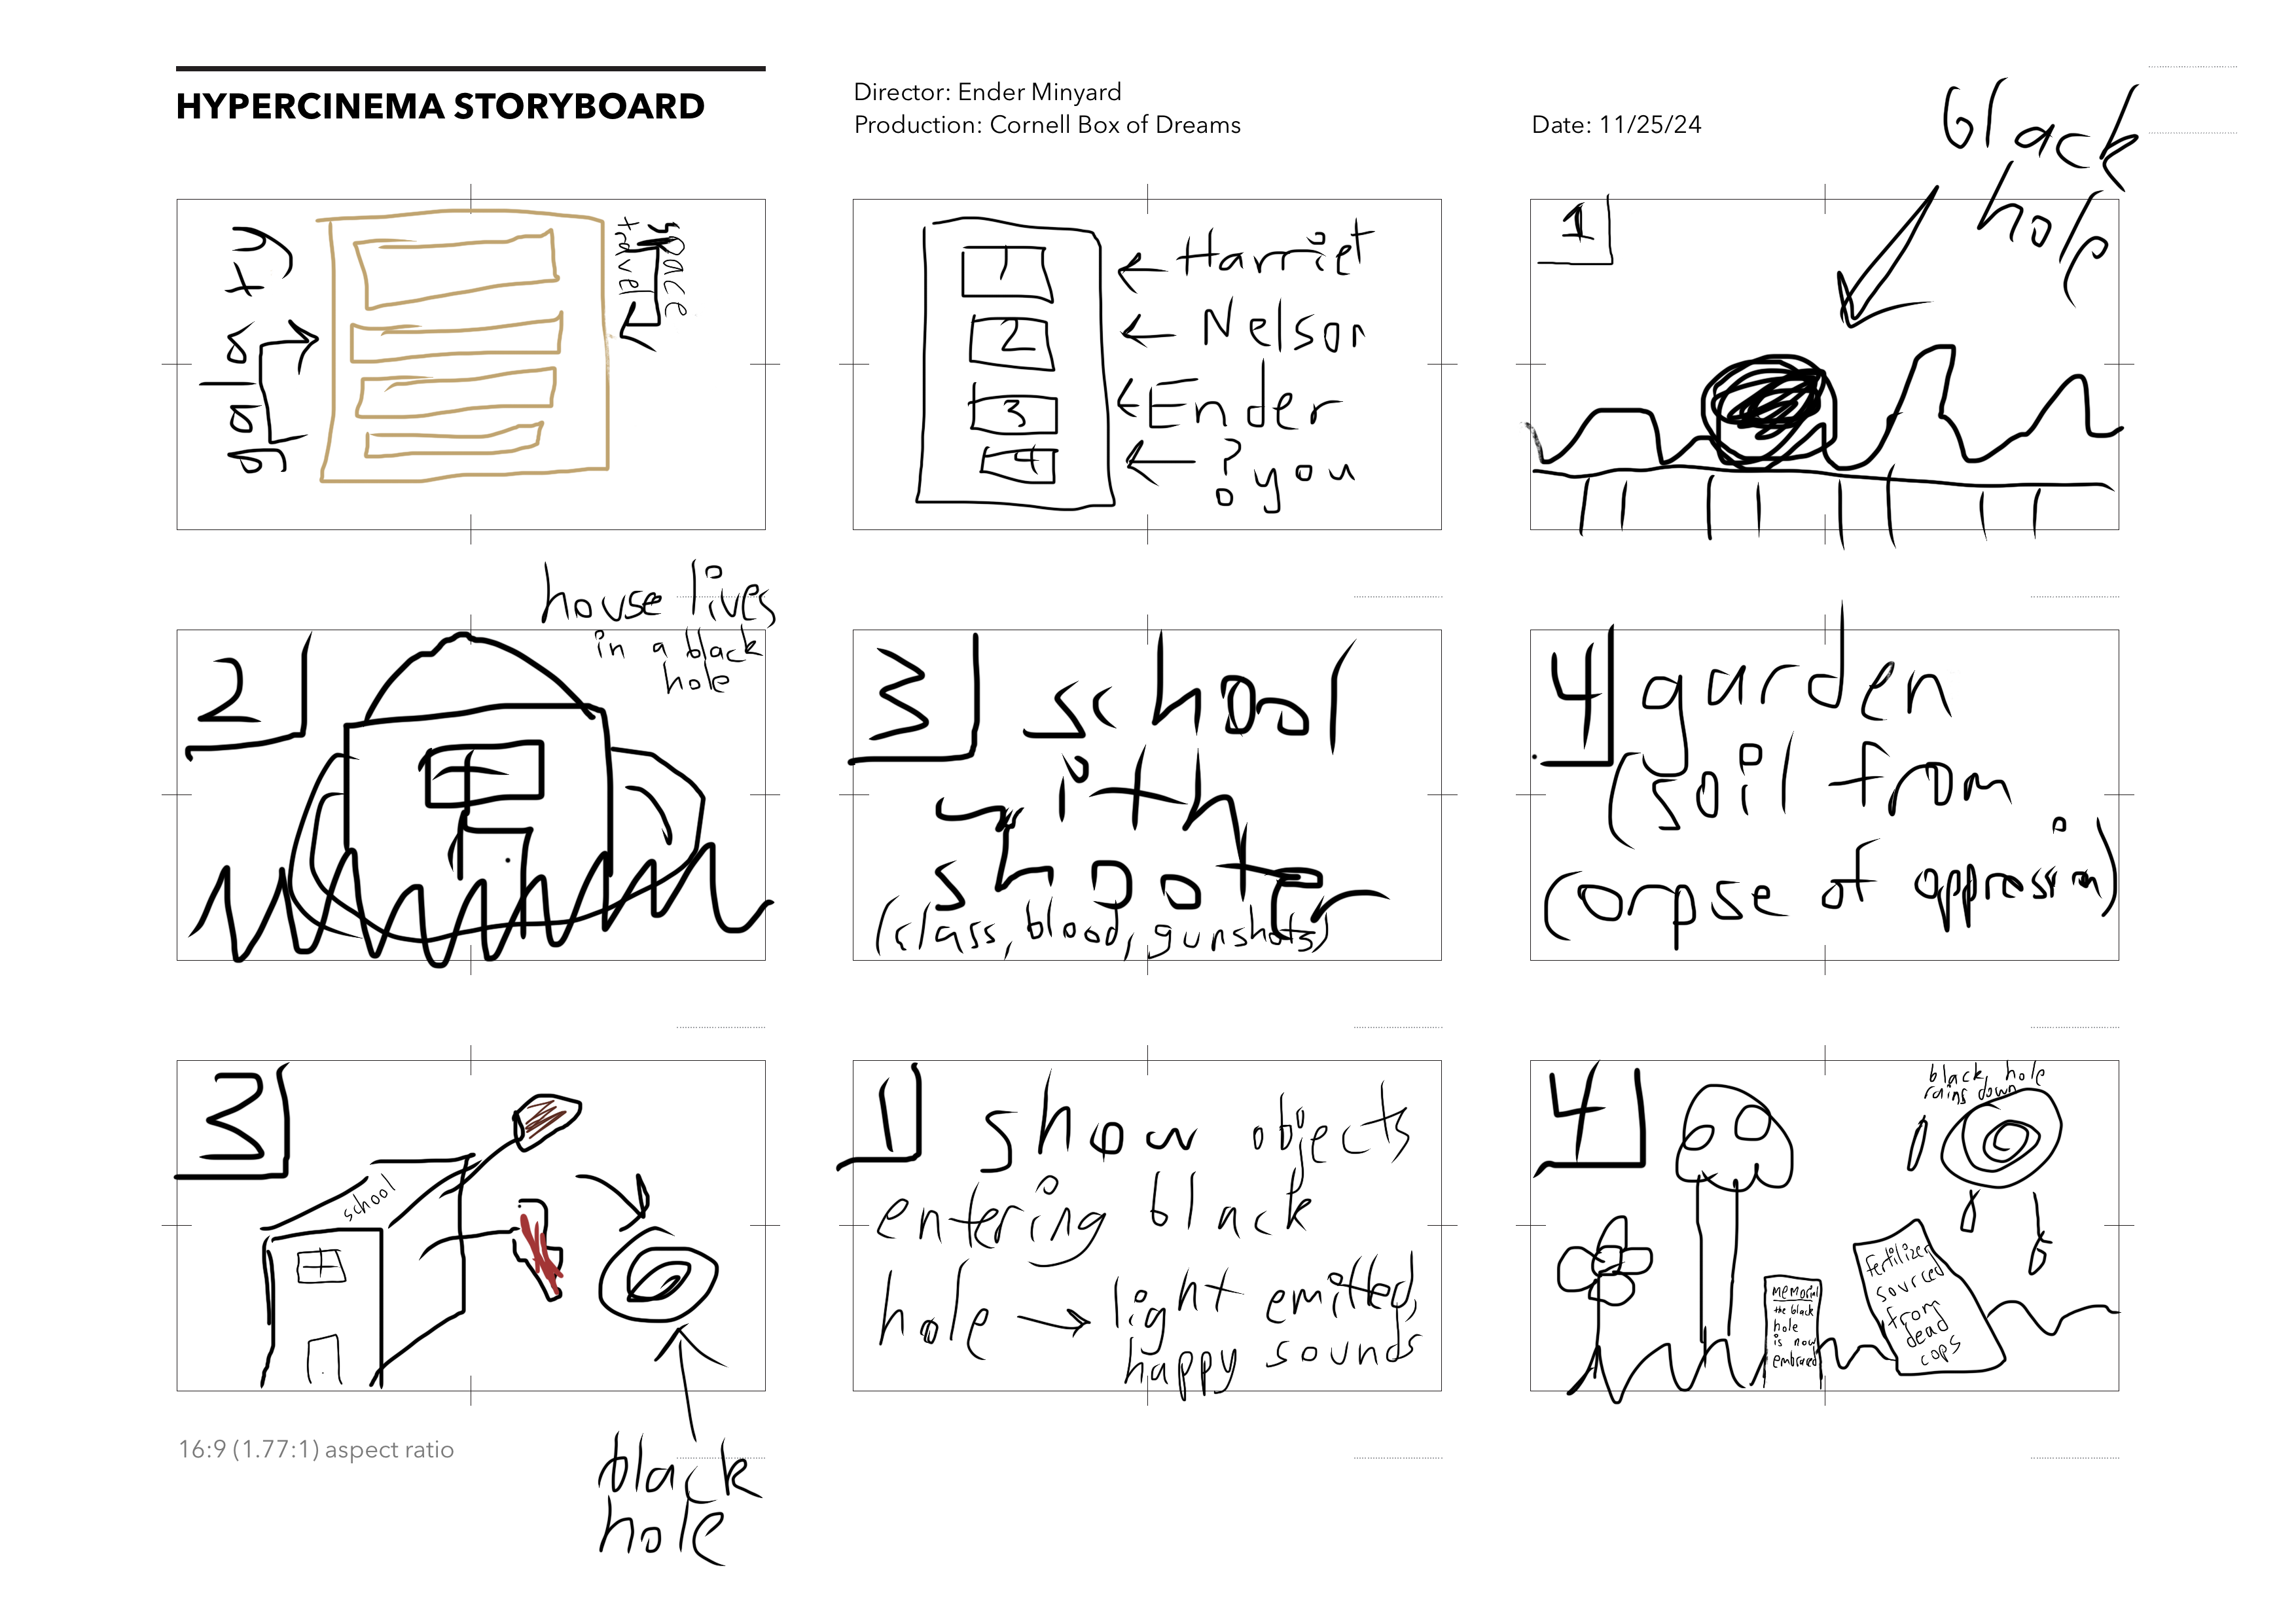 HYPERCINEMA STORYBOARD
Director: Ender Minyard
Production: Cornell Box of Dreams
Date: 11/25/24
black
hole
galaxy
space
travel
1
2
3
4
Harriet
Nelson
Ender
? you
1
house lives
in a black
hole
2
3
school
with
shooter
(class, blood, gunshots)
4
garden
(soil from
corpse of oppression)
3
school
black
hole
1
show objects
entering black
hole → light emitted,
happy sounds
4
black hole
rains down
memorial
the black
hole
is now
embraced
fertilizer
sourced
from
dead
cops
16:9 (1.77:1) aspect ratio